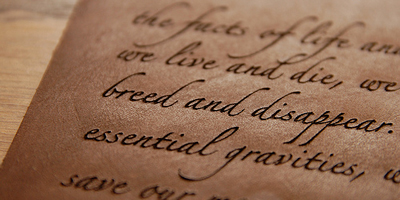 the facts of life and
we live and die, we
breed and disappear.
essential gravities, w
save our